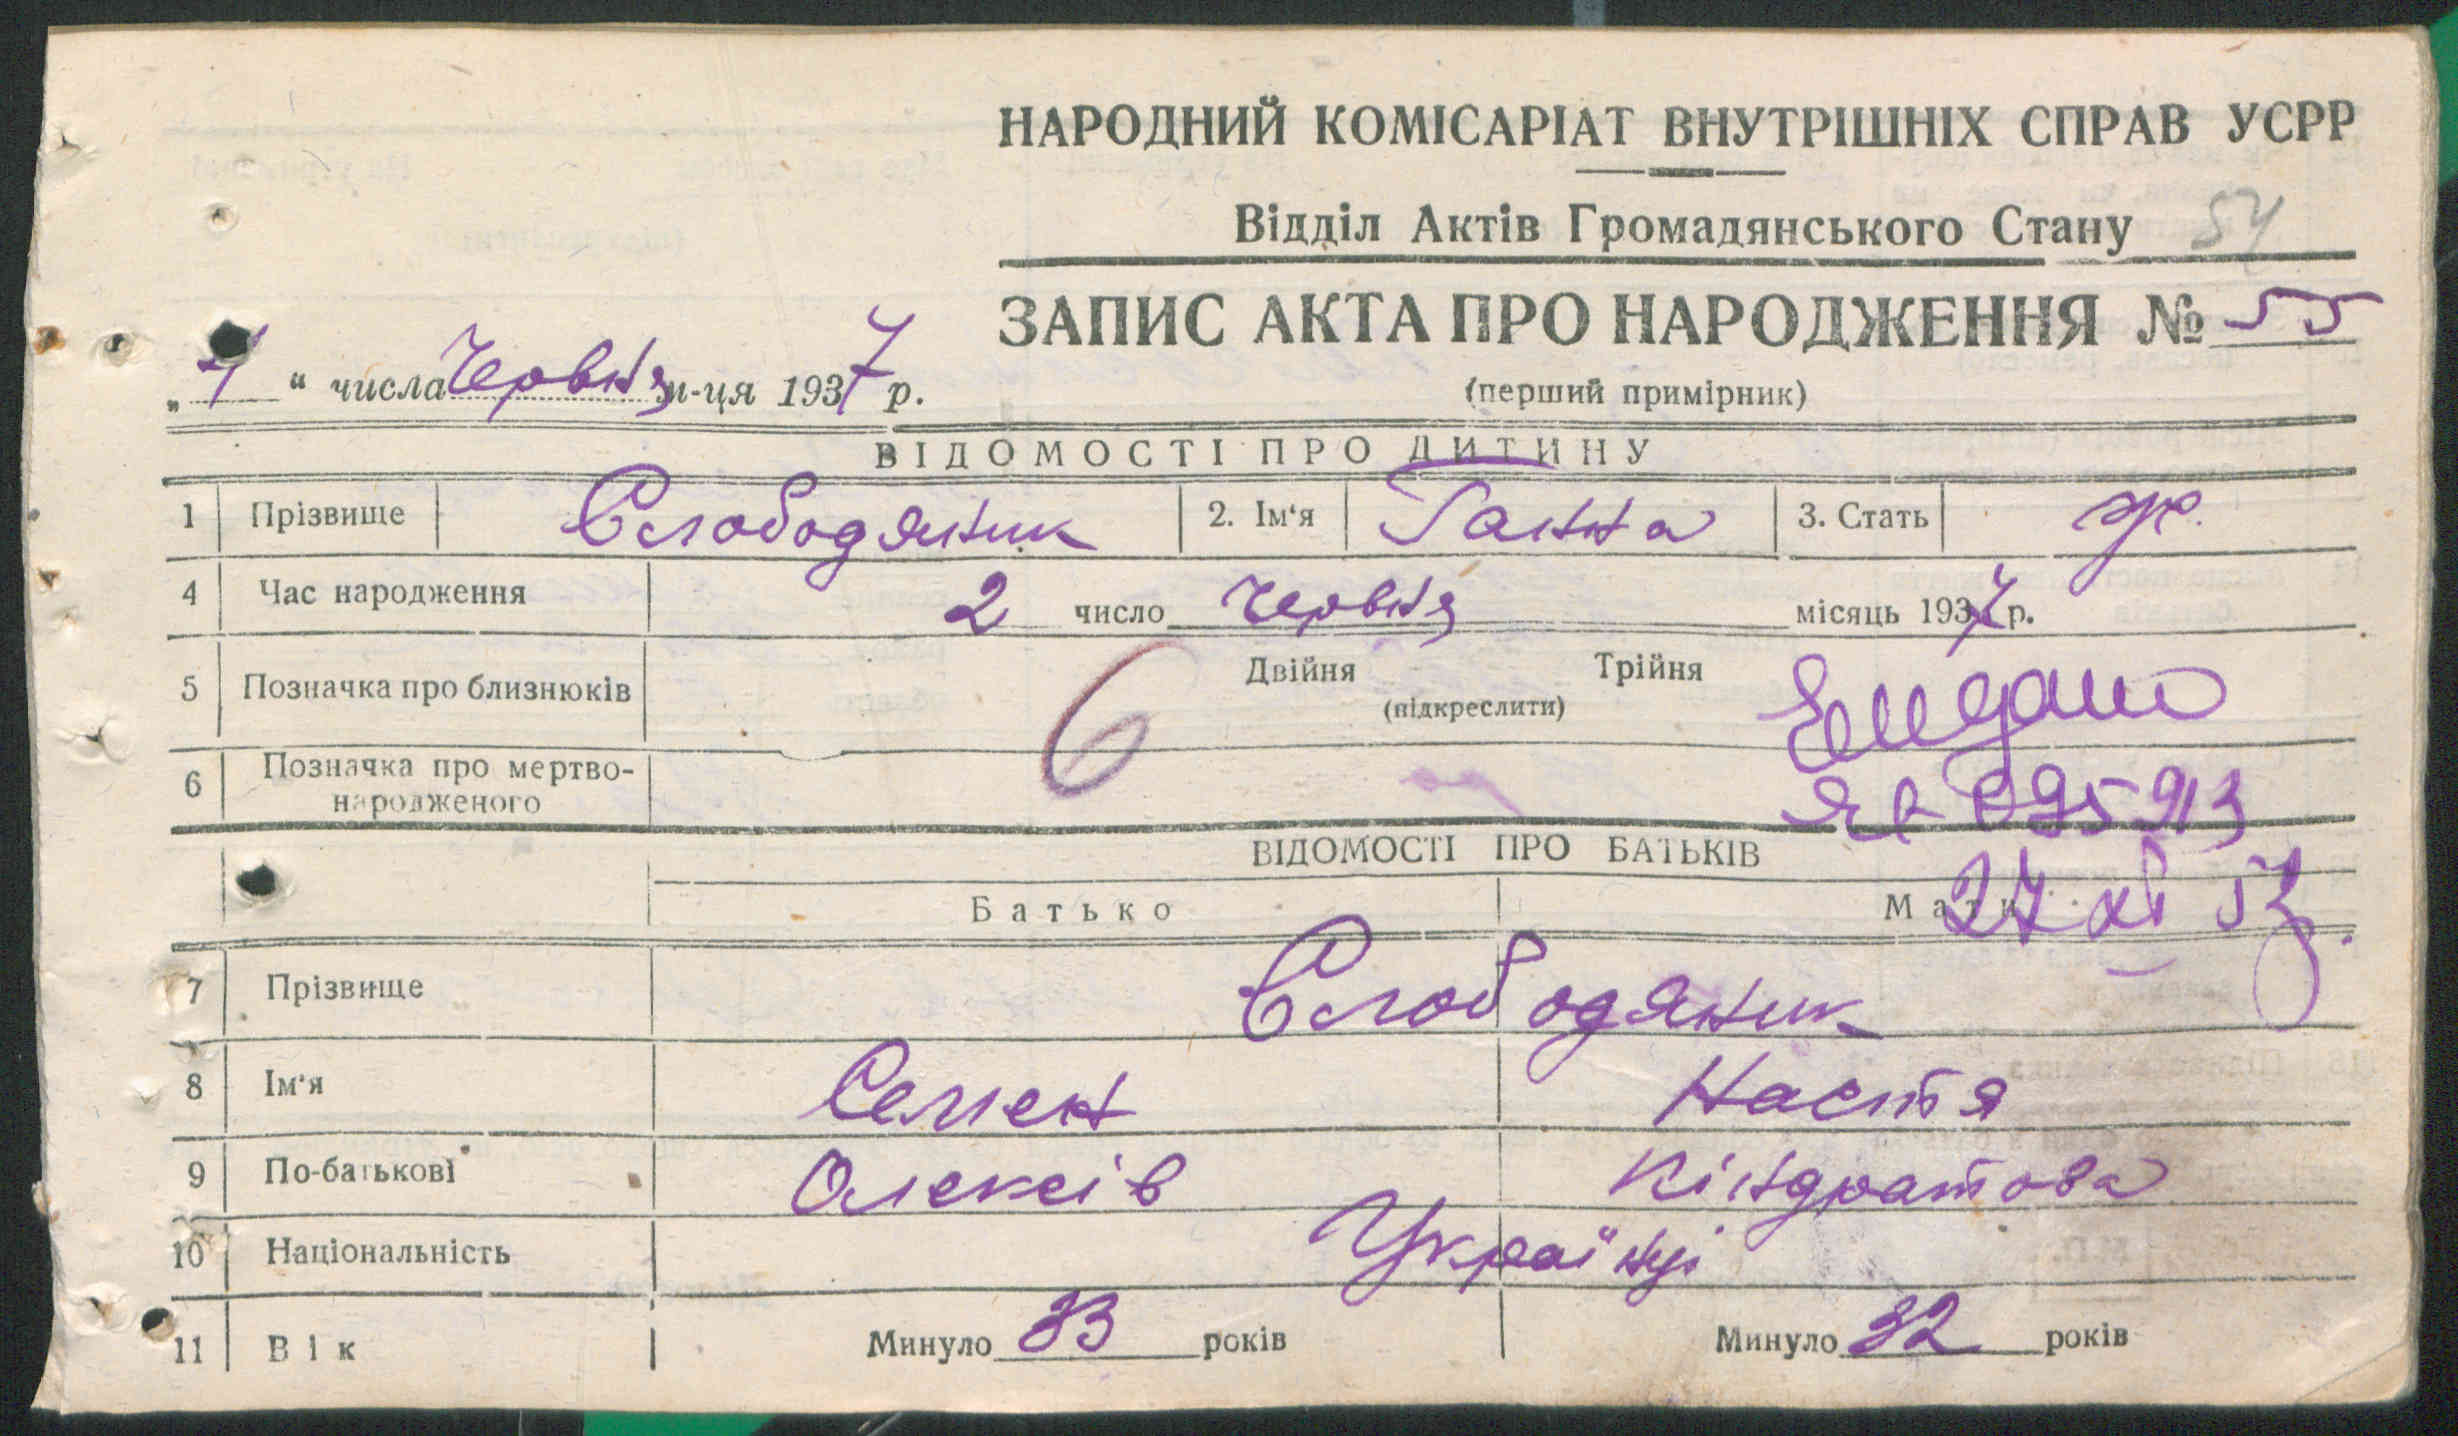 НАРОДНИЙ КОМІСАРІАТ ВНУТРІШНІХ СПРАВ УСРР
Відділ Актів Громадянського Стану 54
ЗАПИС АКТА ПРО НАРОДЖЕННЯ № 55
„ 7 “ числа Червня м-ця 1937 р.
(перший примірник)
ВІДОМОСТІ ПРО ДИТИНУ
1 Прізвище Слободяник 2. Ім‘я Ганна 3. Стать ж.
4 Час народження 2 число Червня місяць 1937 р.
5 Позначка про близнюків Двійня Трійня
(підкреслити)
6
6 Позначка про мертво-
народженого
095913
27 XI 57
ВІДОМОСТІ ПРО БАТЬКІВ
Батько Мати
7 Прізвище Слободяник
8 Ім‘я Семен Настя
9 По-батькові Олексів Кіндратова
10 Національність Українці
11 Вік Минуло 33 років Минуло 32 років